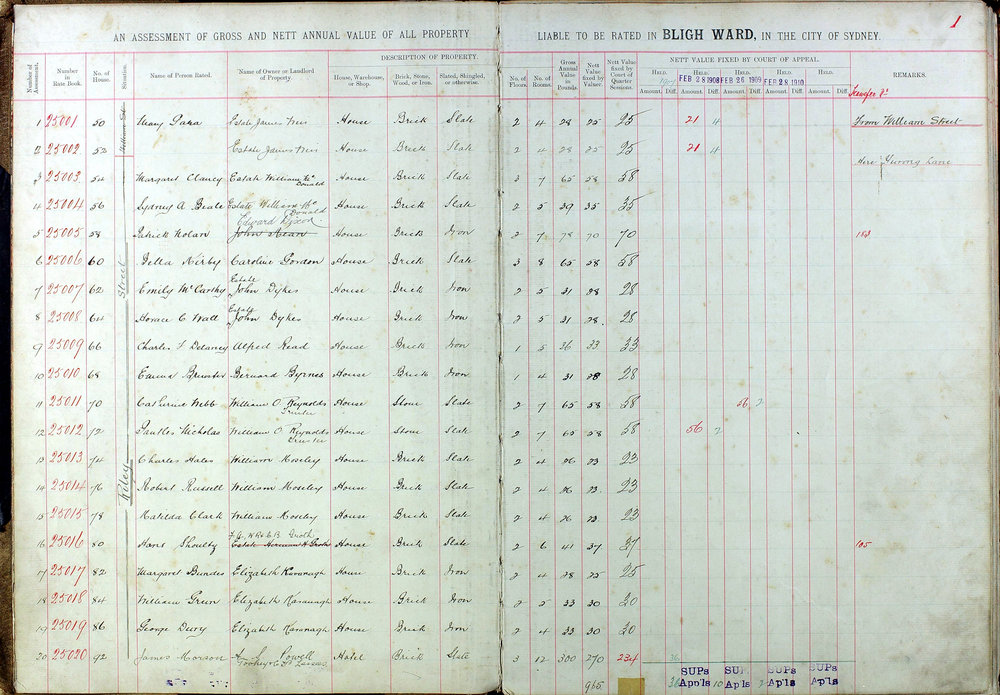 1
AN ASSESSMENT OF GROSS AND NETT ANNUAL VALUE OF ALL PROPERTY LIABLE TO BE RATED IN BLIGH WARD, IN THE CITY OF SYDNEY.
DESCRIPTION OF PROPERTY.
NETT VALUE FIXED BY COURT OF APPEAL.
Number of Assessment. Number in Rate Book. No. of House. Situation. Name of Person Rated. Name of Owner or Landlord of Property. House, Warehouse, or Shop. Brick, Stone, Wood, or Iron. Slated, Shingled, or otherwise. No. of Floors. No. of Rooms. Gross Annual Value in Pounds. Nett Value fixed by Valuer. Nett Value fixed by Court of Quarter Sessions. REMARKS.
HELD. HELD. HELD. HELD. HELD.
FEB 28 1908 FEB 26 1909 FEB 28 1910
Amount. Diff. Amount. Diff. Amount. Diff. Amount. Diff. Amount. Diff.
William St
Riley Street
1 25001 50 Estate James House Brick Slate 2 4 28 25 25 21 4 From William Street
2 25002 52 Estate James House Brick Slate 2 4 28 25 25 21 4
Here Yurong Lane
3 25003 54 Margaret Clancy Estate William McDonald House Brick Slate 3 7 65 58 58
4 25004 56 Sydney A Beale Estate William McDonald House Brick Slate 2 5 39 35 35
Edward Dixon
5 25005 58 Patrick Nolan John House Brick Iron 2 7 78 70 70
6 25006 60 Bella Kirby Caroline Gordon House Brick Slate 3 8 65 58 58
Estate
7 25007 62 Emily McCarthy John Dykes House Brick Iron 2 5 31 28 28
Estate
8 25008 64 Horace C Watt John Dykes House Brick Iron 2 5 31 28 28
9 25009 66 Charles F Delaney Alfred Read House Brick Iron 1 5 36 33 33
10 25010 68 Emma Brewster Bernard Byrnes House Brick Iron 1 4 31 28 28
11 25011 70 Catherine Webb William O. Reynolds House Stone Slate 2 7 65 58 58 56 2
Trustee
12 25012 72 Nicholas William O Reynolds House Stone Slate 2 7 65 58 58 56 2
Trustee
13 25013 74 Charles Hales William Moseley House Brick Slate 2 4 26 23 23
14 25014 76 Robert Russell William Moseley House Brick Slate 2 4 26 23 23
15 25015 78 Matilda Clark William Moseley House Brick Slate 2 4 26 23 23
16 25016 80 Hans Shoultz Estate Herman H Groth House Brick Slate 2 6 41 37 37 105
17 25017 82 Margaret Bundes Elizabeth Kavanagh House Brick Iron 2 4 28 25 25
18 25018 84 William Grun Elizabeth Kavanagh House Brick Iron 2 5 33 30 30
19 25019 86 George Elizabeth Kavanagh House Brick Iron 2 4 33 30 30
20 25020 92 James Morson Powell Hotel Brick Slate 3 12 300 270 234 36
965
SUPs SUPs SUPs SUPs
Apls Apls Apls Apls